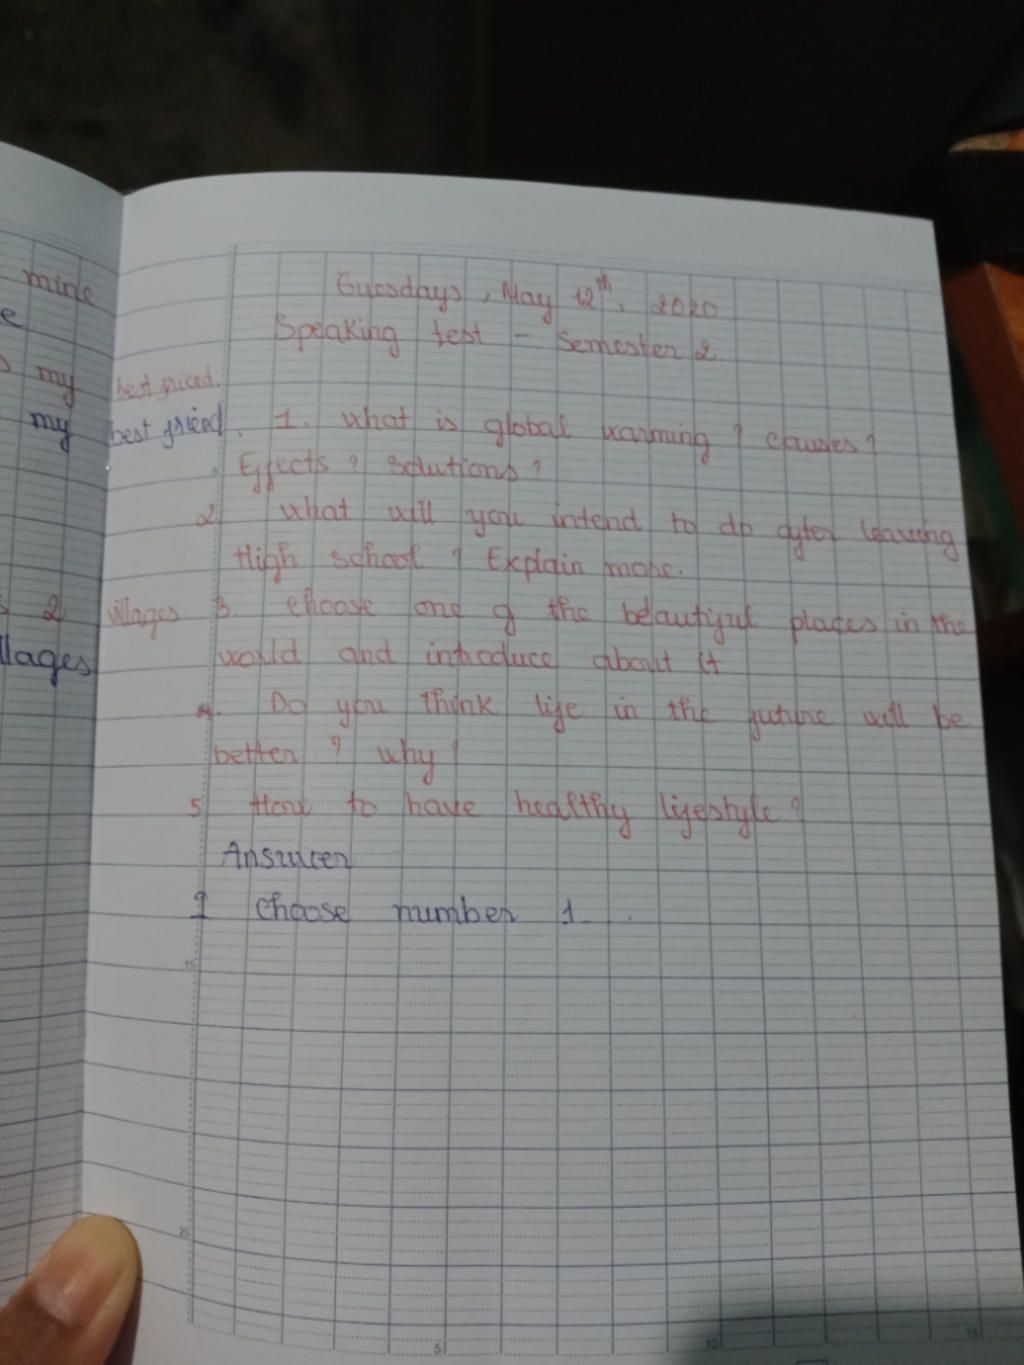 mine
e
my
my
2
llages
Tuesdays, May 12th, 2020
Speaking test - Semester 2.
best friced.
best friend.
1. What is global warming? clauses?
Effects? Solutions?
2 What will you intend to do after leaving
High school? Explain more.
villages
3. choose one of the beautiful places in the
world and introduce about it
4. Do you think life in the future will be
better? why!
5 How to have healthy lifestyle?
Answer
I choose number 1.
15
20
5
10
15